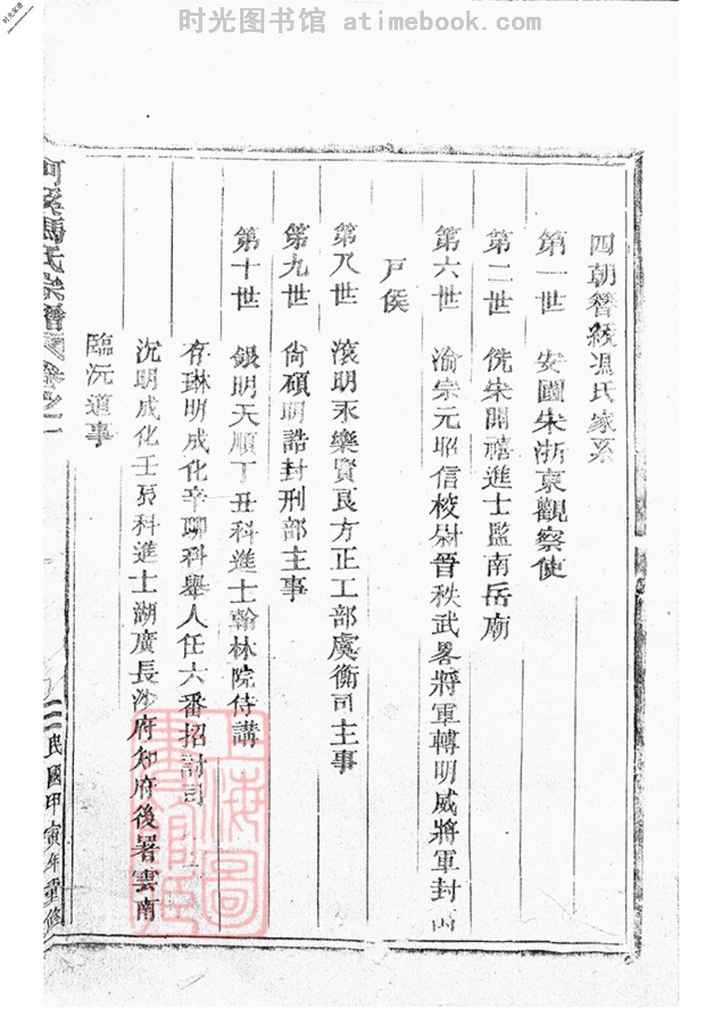 时光图书馆 atimebook.com
时光家谱
四朝簪纓馮氏家系
第一世 安國宋浙東觀察使
第二世 侁宋開禧進士監南岳廟
第六世 渝宗元昭信校尉晉秩武畧將軍轉明威將軍封
戸侯
第八世 滚明永樂賢良方正工部虞衡司主事
第九世 尙碩明誥封刑部主事
第十世 銀明天順丁丑科進士翰林院侍講
存琳明成化辛聊科舉人任六番招討司
沉明成化壬辰科進士湖廣長沙府知府後署雲南
臨沅道事
馮氏宗譜 卷之一
二 民國甲寅年重修
上海圖
書館藏